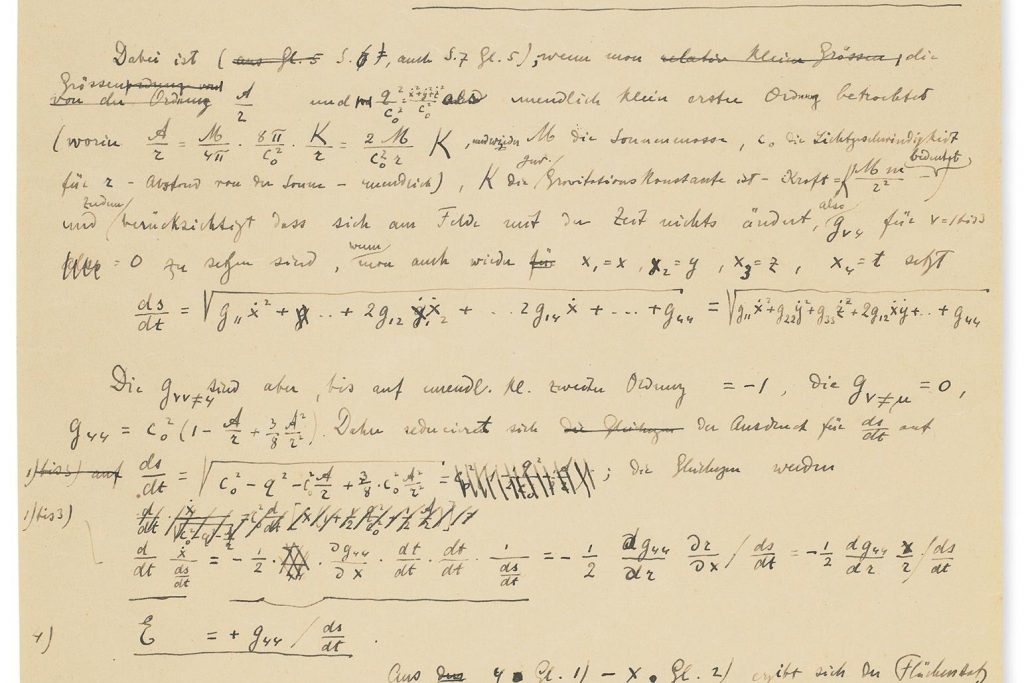 Dabei ist (aus Gl. 5 S. 6 f, auch S. 7 Gl. 5), wenn man relativ kleine Grössen, die
Grössenordnung und
von der Ordnung A/r und q²/c₀² = (ẋ²+ẏ²+ż²)/c₀² als unendlich klein erster Ordnung betrachtet
(worin A/r = M/4π · 8π/c₀² · K/r = 2M/(c₀² r) K, und wieder M die Sonnenmasse, c₀ die Lichtgeschwindigkeit
für r - Abstand von der Sonne - unendlich), K die grav. Gravitationskonstante ist - Kraft = K M m/r² bedeutet -)
und berücksichtigt dass sich am Felde mit der Zeit nichts ändert, also g_ν4 für ν = 1 bis 3
= 0 zu setzen sind, wenn man auch wieder für x₁ = x, x₂ = y, x₃ = z, x₄ = t setzt
ds/dt = √(g₁₁ẋ² + .. + 2g₁₂ẏẋ + ... 2g₁₄ẋ + ... + g₄₄) = √(g₁₁ẋ² + g₂₂ẏ² + g₃₃ż² + 2g₁₂ẋẏ + .. + g₄₄)
Die g_νν≠4 sind aber, bis auf unendl. kl. zweiter Ordnung = -1, die g_ν≠μ = 0,
g₄₄ = c₀² (1 - A/r + 3/8 A²/r²). Daher reduciret sich die Gleichungen der Ausdruck für ds/dt auf
1) bis 3) auf ds/dt = √(c₀² - q² - c₀² A/r + 3/8 · c₀² A²/r²) = ; die Gleichungen werden
1) bis 3)
d/dt ẋ/(ds/dt) = - 1/2 · ∂g₄₄/∂x · dt/dt · dt/dt · 1/(ds/dt) = - 1/2 dg₄₄/dr ∂r/∂x / ds/dt = - 1/2 dg₄₄/dr x/r / ds/dt
4) ℰ = + g₄₄ / ds/dt .
Aus den y • Gl. 1) - x • Gl. 2) ergibt sich der Flächensatz